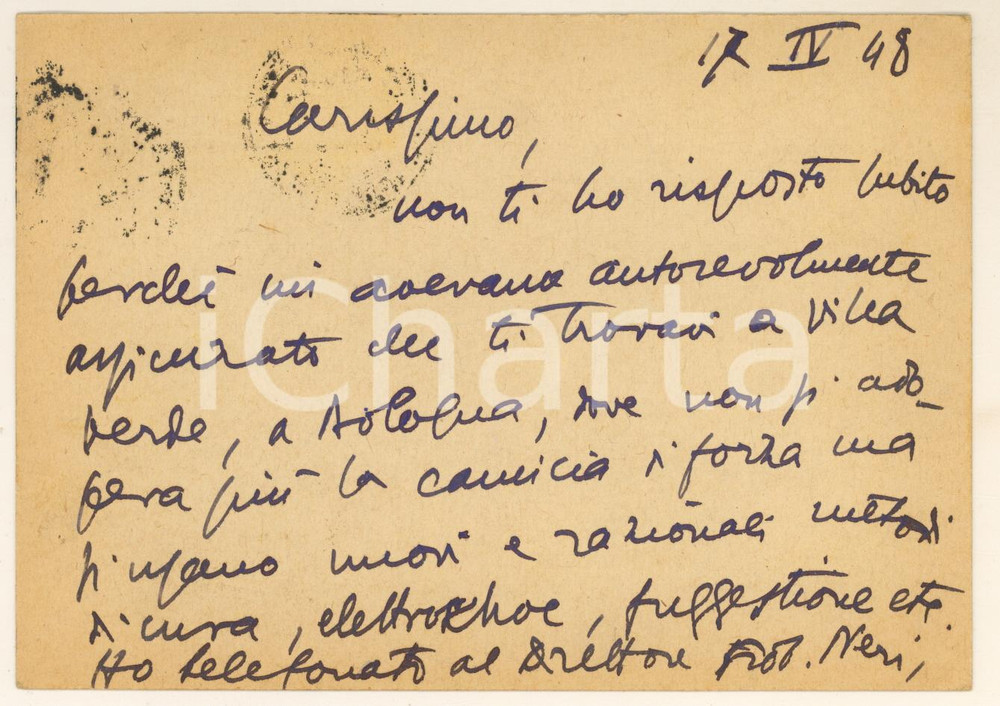 17 IV 48
Carissimo,
non ti ho risposto subito
perché mi avevano autorevolmente
assicurato che ti trovavi a villa
verde, a Bologna, dove non si ado-
pera più la camicia di forza ma
si usano nuovi e razionali metodi
di cura, elettrokhoc, suggestione etc.
Ho telefonato al Direttore Prof. Neri,
iCharta